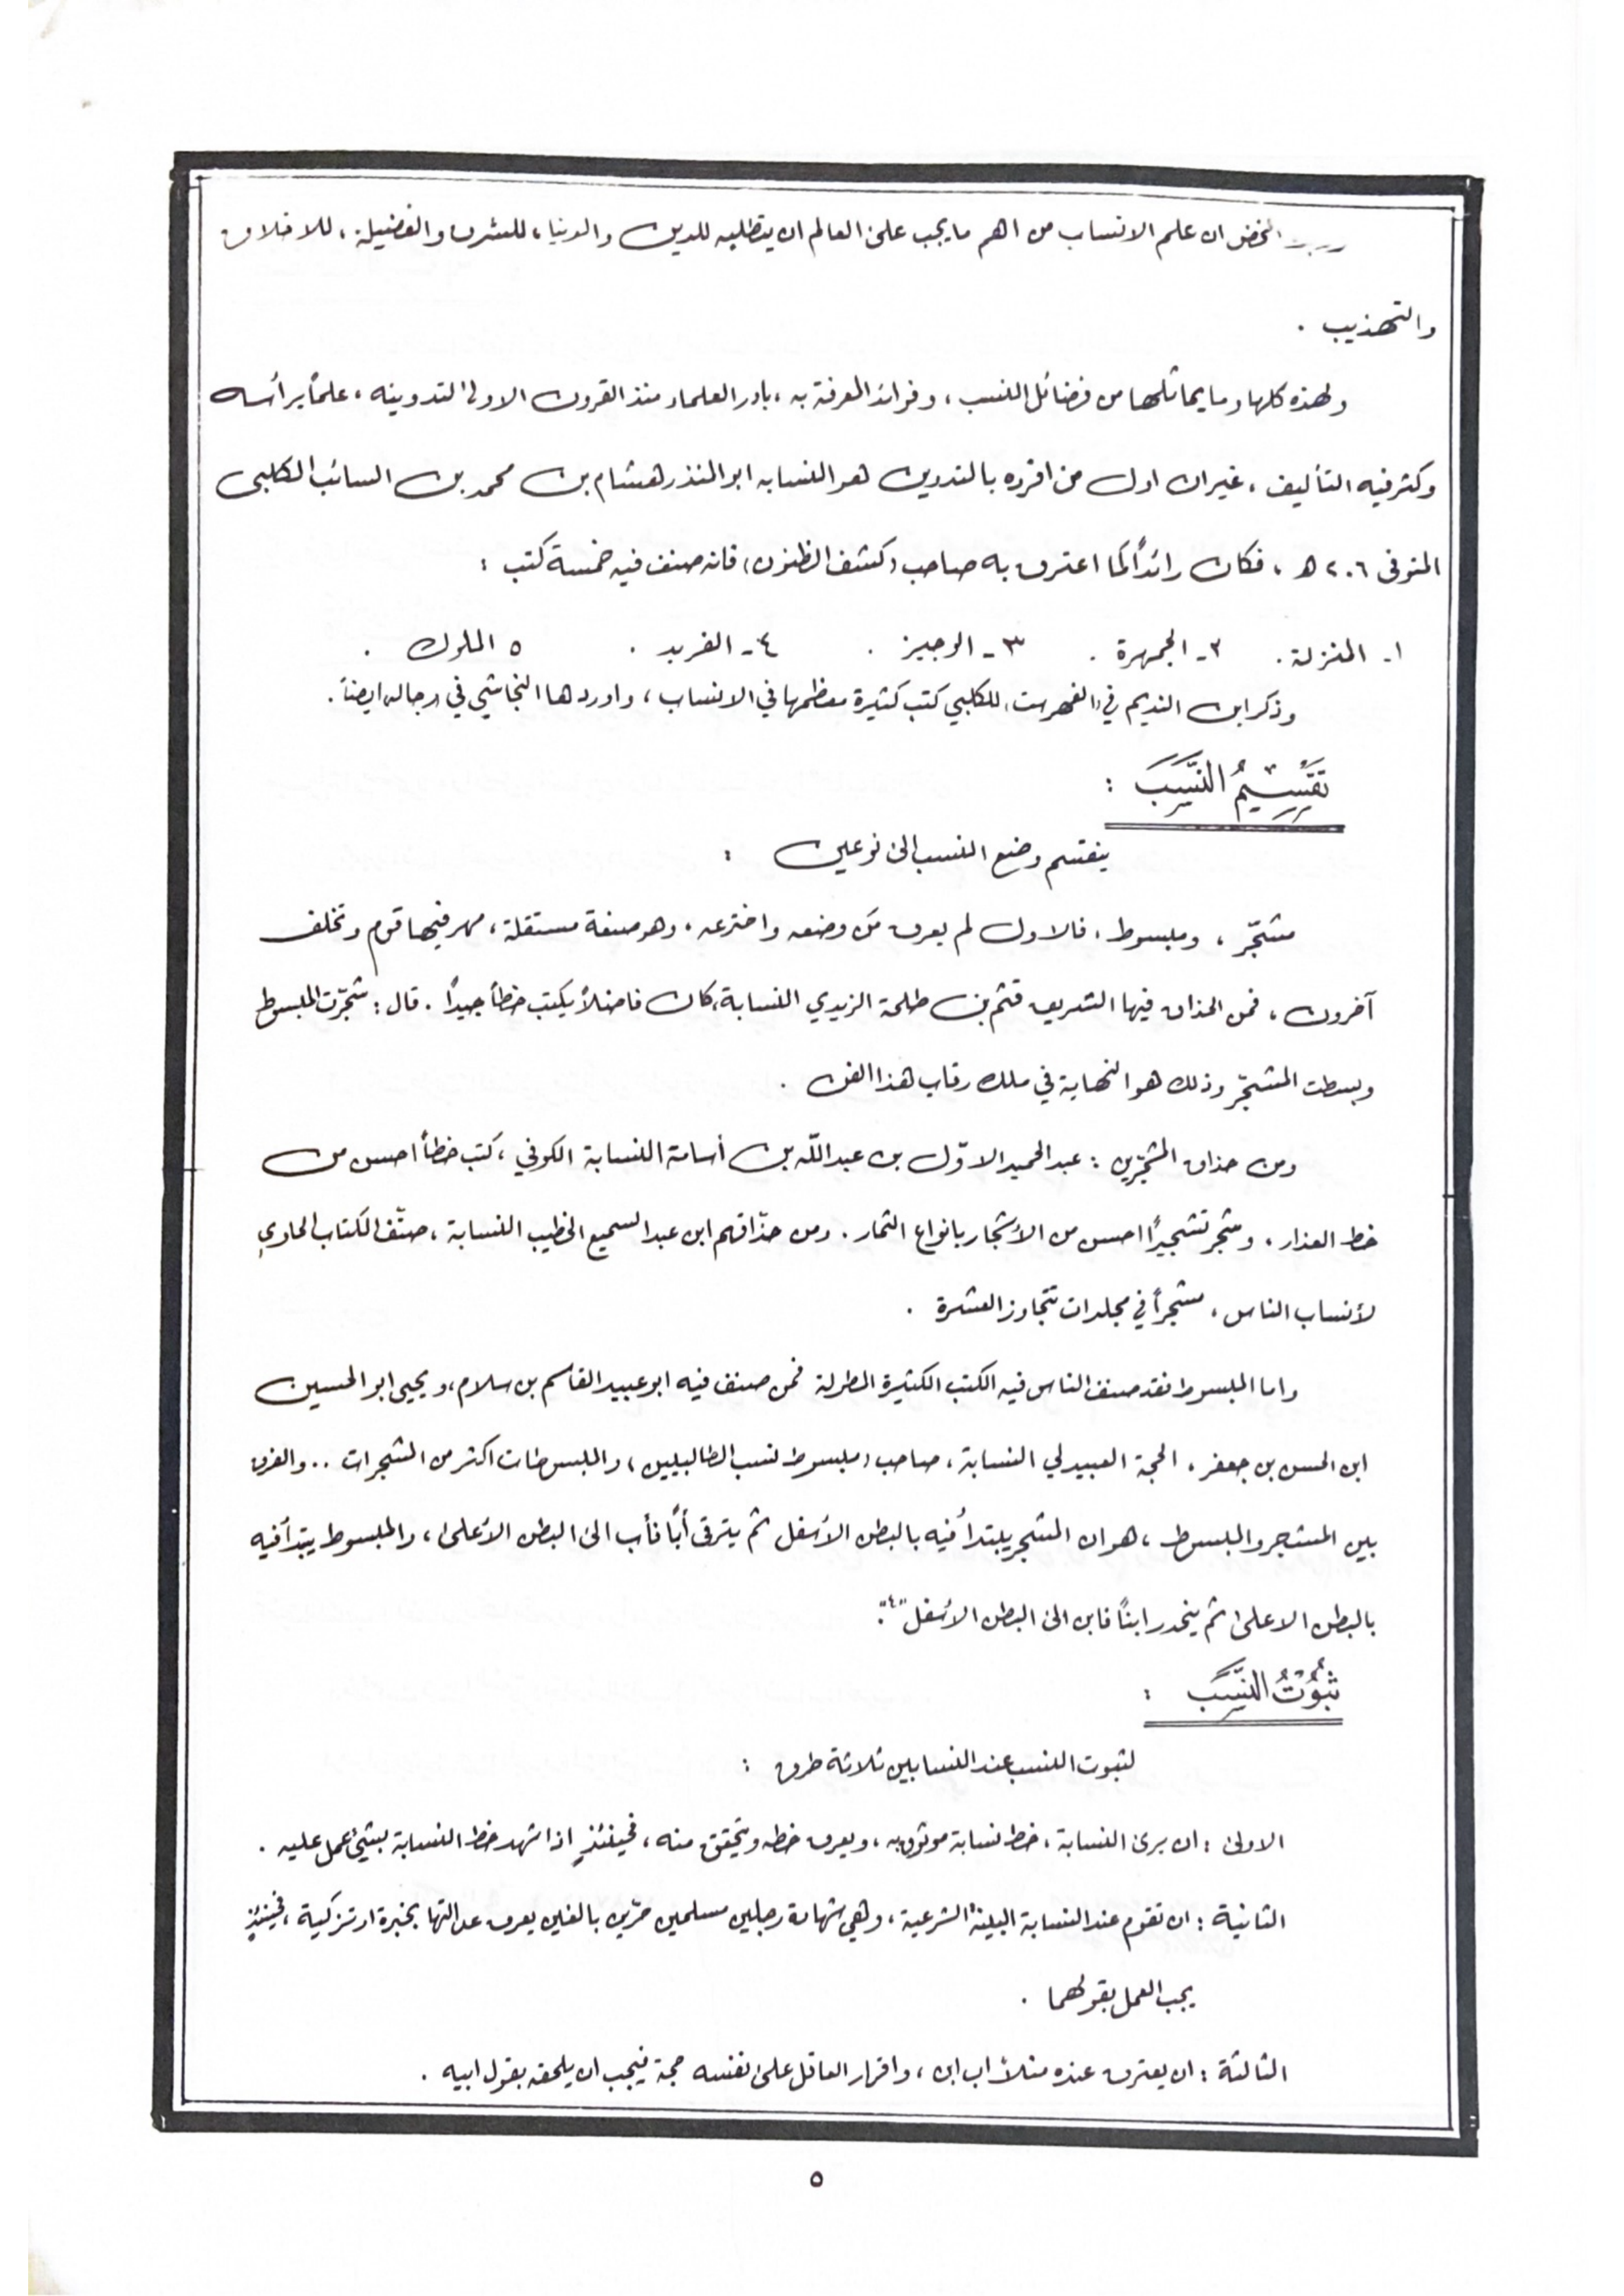 ان علم الانساب من اهم ما يجب على العالم ان يتطلبه للدين والدنيا، للشرف والفضيلة، للاخلاق
والتهذيب .
ولهذه كلها وما يماثلها من فضائل النسب، وفرائد المعرفة به، بادر العلماء منذ القرون الاولى لتدوينه، علماً برأسه
وكثر فيه التأليف، غير ان اول من افرده بالتدوين هو النسابه ابو المنذر هشام بن محمد بن السائب الكلبي
المتوفى ٢٠٦ هـ، فكان رائداً كما اعترف به صاحب (كشف الظنون) فانه صنف فيه خمسة كتب :
١- المنزلة. ٢- الجمهرة . ٣- الوجيز . ٤- الفريد . ٥ الملوك .
وذكر ابن النديم في (الفهرست) للكلبي كتب كثيرة معظمها في الانساب، واوردها النجاشي في رجاله ايضاً .
تَقْسِيمُ النَّسَبَ :
ينقسم وضع النسب الى نوعين :
مشجّر، ومبسوط، فالاول لم يعرف مَن وضعه واخترعه، وهو صنعة مستقلة، مهر فيها قوم وتخلف
آخرون، فمن الحذاق فيها الشريف قثم بن طلحة الزيدي النسابة، كان فاضلاً يكتب خطاً جيداً . قال : شجّرت المبسوط
وبسطت المشجّر وذلك هو النهاية في ملك رقاب هذا الفن .
ومن حذاق المشجّرين : عبد الحميد الاوّل بن عبد اللّه بن أسامة النسابة الكوفي، كتب خطاً احسن من
خط العذار . وشجر تشجيراً احسن من الأشجار بانواع الثمار . ومن حذّاقهم ابن عبد السميع الخطيب النسابة، صنّف الكتاب الحاوي
لأنساب الناس، مشجراً في مجلدات تتجاوز العشرة .
واما المبسوط فقد صنف الناس فيه الكتب الكثيرة المطولة فمن صنف فيه ابو عبيد القاسم بن سلام، ويحيى ابو الحسين
ابن الحسن بن جعفر، الحجة العبيدلي النسابة، صاحب (مبسوط نسب الطالبيين) والمبسوطات اكثر من المشجرات .. والفرق
بين المشجر والمبسوط، هو ان المشجر يبتدأ فيه بالبطن الأسفل ثم يترقى أباً فأب الى البطن الأعلى، والمبسوط يبتدأ فيه
بالبطن الاعلى ثم ينحدر ابناً فابن الى البطن الأسفل "٤".
ثُبُوْتُ النَّسَبَ :
لثبوت النسب عند النسابين ثلاثة طرق :
الاولى : ان يرى النسابة، خط نسابة موثوق به، ويعرف خطه ويتحقق منه، فحينئذٍ اذا شهد خط النسابة بشيءٍ عمل عليه .
الثانية : ان تقوم عند النسابة البينة الشرعية، وهي شهادة رجلين مسلمين حرّين بالغين يعرف عدالتها بخبرة او تزكية، فحينئذٍ
يجب العمل بقولهما .
الثالثة : ان يعترف عنده مثلاً اب ابن، واقرار العاقل على نفسه حجة فيجب ان يلحقه بقول ابيه .
٥